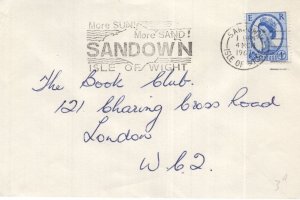 More SUN!
More SAND!
SANDOWN
ISLE OF WIGHT
E R
ISLE OF
The Book Club.
121 Charing Cross Road
London
W.C.2.
3d